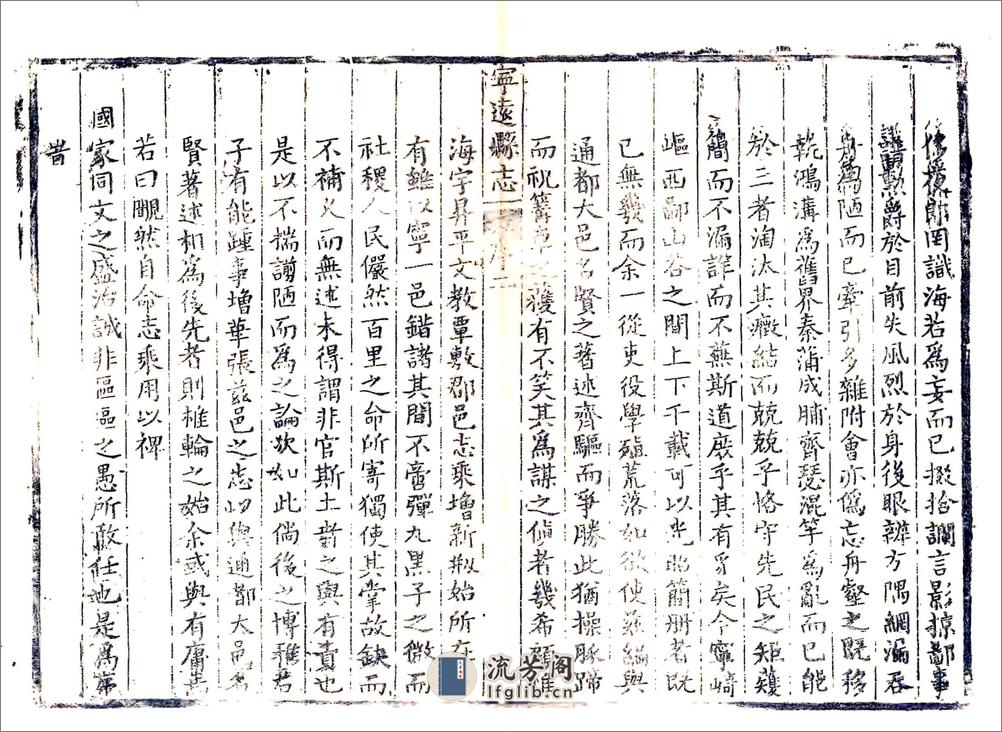 罔識海若為妄而已掇拾讕言影掠鄙事
勲爵於目前失風烈於身後眼辨方隅網漏吞
舟為陋而已牽引多雜附會亦偽忘舟壑之既移
執鴻溝為舊界秦蒲成脯齊瑟混竽為亂而已能
於三者淘汰其癥結而兢兢乎恪守先民之矩矱
簡而不漏詳而不蕪斯道庶乎其有豸矣今寧崎
嶇西鄙山谷之間上下千載可以光昭簡册者既
已無幾而余一從吏役學殖荒落如欲使茲編與
通都大邑名賢之著述齊驅而爭勝此猶操豚蹄
而祝篝車之獲有不笑其為謀之傎者幾希顧維
寧遠縣志
海宇昇平文教覃敷郡邑志乘增新剏始所在
有雖以寧一邑錯諸其間不啻彈丸黑子之微而
社稷人民儼然百里之命所寄獨使其掌故缺而
不補文而無述未得謂非官斯土者之與有責也
是以不揣謭陋而為之論次如此倘後之博雅君
子有能踵事增華張茲邑之志以與通都大邑名
賢著述相為後先者則椎輪之始余或與有庸焉
若曰覥然自命志乘用以裨
國家同文之盛治誠非區區之愚所敢任也是為
昔
流芳阁
lfglib.cn